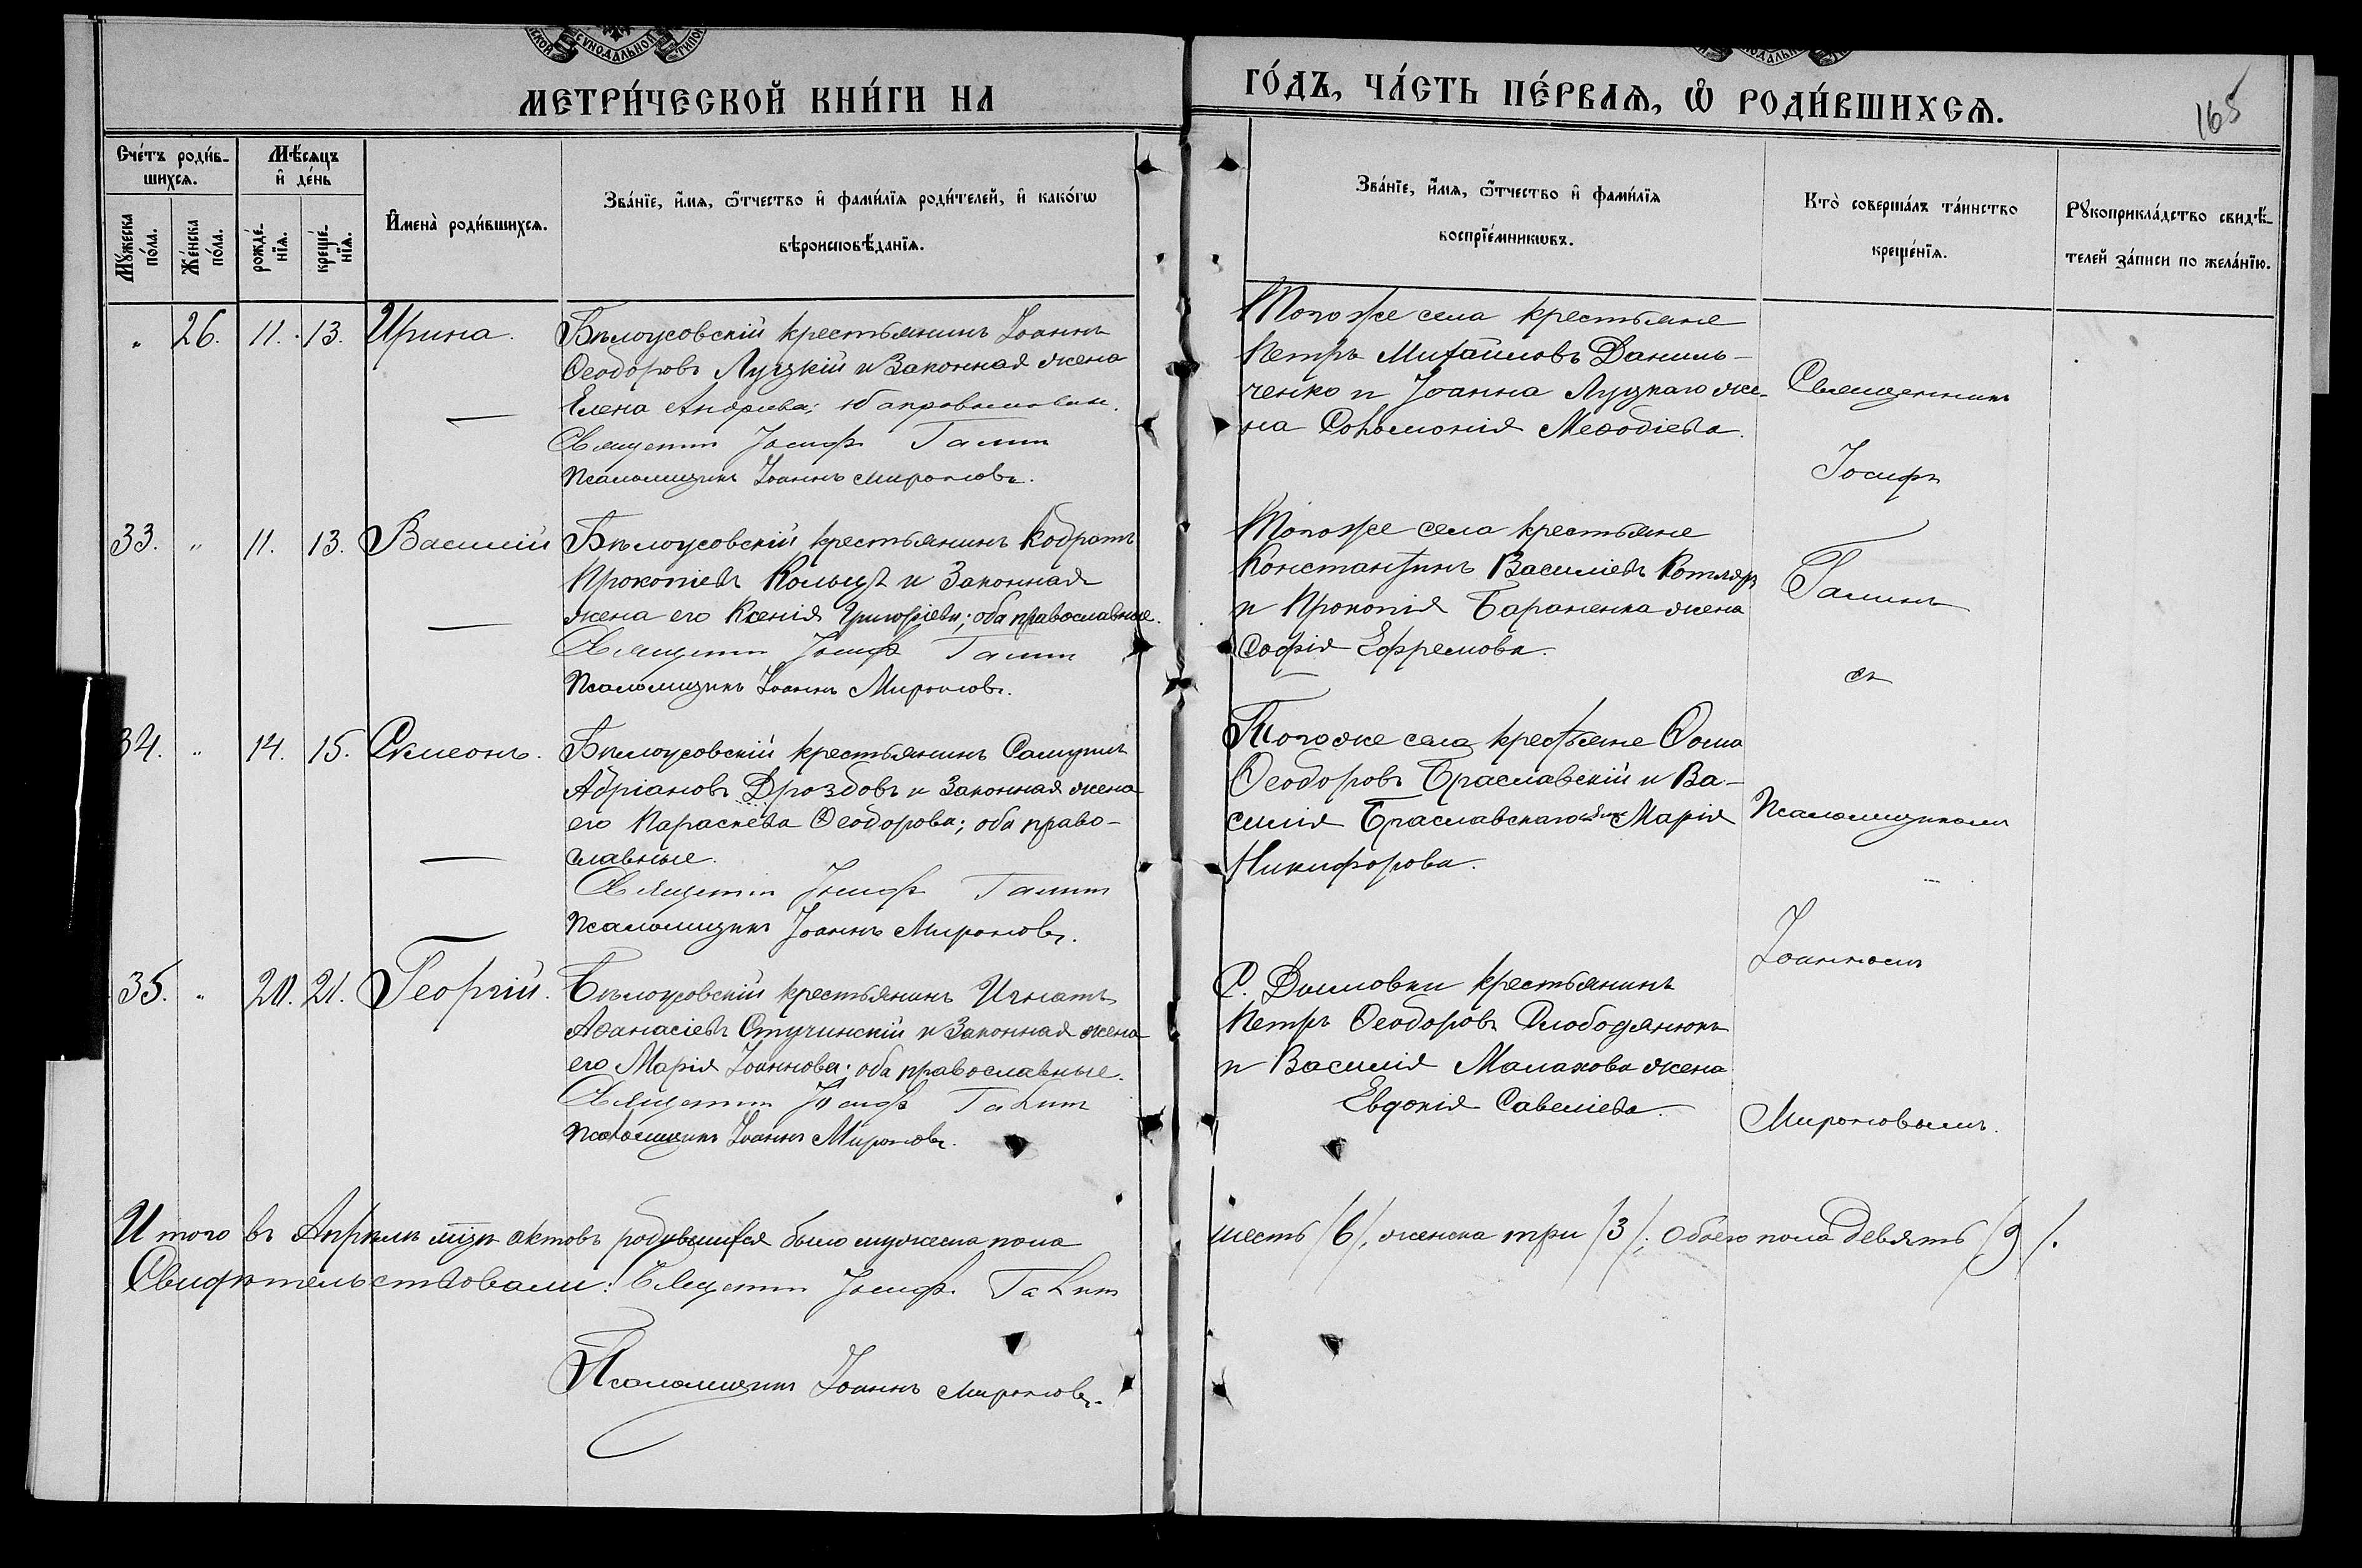 МЕТРИ́ЧЕСКОЙ КНИ́ГИ НА
ГО́ДЪ, ЧА́СТЬ ПЕ́РВАѦ, Ѡ҆ РОДИ́ВШИХСѦ.
165
Сче́тъ роди́в-
шихсѧ.
Мѣ́сѧцъ
и҆ де́нь
Мꙋ́жеска
по́ла.
Же́нска
по́ла.
рожде́-
нїѧ.
креще́-
нїѧ.
И҆мена̀ роди́вшихсѧ.
Зва́нїе, и҆́мѧ, ѻ҆́тчество и҆ фами́лїѧ роди́телей, и҆ како́гѡ
вѣроисповѣ́данїѧ.
Зва́нїе, и҆́мѧ, ѻ҆́тчество и҆ фами́лїѧ
воспрїе́мникѡвъ.
Кто̀ соверша́лъ та́инство
креще́нїѧ.
Рꙋкоприкла́дство свидѣ́-
телей за́писи по жела́нїю.
" 26. 11. 13. Ирина.
Бѣлоусовскій крестьянинъ Іоаннъ
Ѳеодоровъ Луцкій и законная жена
Елена Андреева;
Священникъ Іосифъ
Псаломщикъ Іоаннъ Мироновъ.
Тогоже села крестьяне
Петръ Михайловъ Даниль-
ченко и Іоанна Луцкаго же-
на Соломонія Меѳодіева.
33. " 11. 13. Василій
Бѣлоусовскій крестьянинъ Кодратъ
Прокопіевъ и законная
жена его Ксенія Григоріева; оба православные.
Священникъ Іосифъ
Псаломщикъ Іоаннъ Мироновъ.
Тогоже села крестьяне
Константинъ Василіевъ Котляръ
и Прокопія Бараненка жена
Софія Ефремова.
34. " 14. 15. Симеонъ.
Бѣлоусовскій крестьянинъ Самуилъ
Адріановъ Дроздовъ и законная жена
его Параскева Ѳеодорова; оба право-
славные.
Священникъ Іосифъ
Псаломщикъ Іоаннъ Мироновъ.
Тогоже села крестьяне Ѳома
Ѳеодоровъ Браславскій и Ва-
силія Браславскаго жена Марія
Никифорова.
35. " 20. 21. Георгій.
Бѣлоусовскій крестьянинъ Игнатъ
Аѳанасіевъ и законная жена
его Марія Іоаннова; оба православные.
Священникъ Іосифъ
Псаломщикъ Іоаннъ Мироновъ.
С. крестьянинъ
Петръ Ѳеодоровъ Слободянюкъ
и Василія Малахова жена
Евдокія Савеліева.
Священникъ
Іосифъ
съ
Псаломщикомъ
Іоанномъ
Мироновымъ.
Итого въ Апрѣлѣ мцѣ актовъ родившихся было мужеска пола
шесть /6/, женска три /3/; обоего пола девять /9/.
Свидѣтельствовали: Священникъ Іосифъ
Псаломщикъ Іоаннъ Мироновъ.